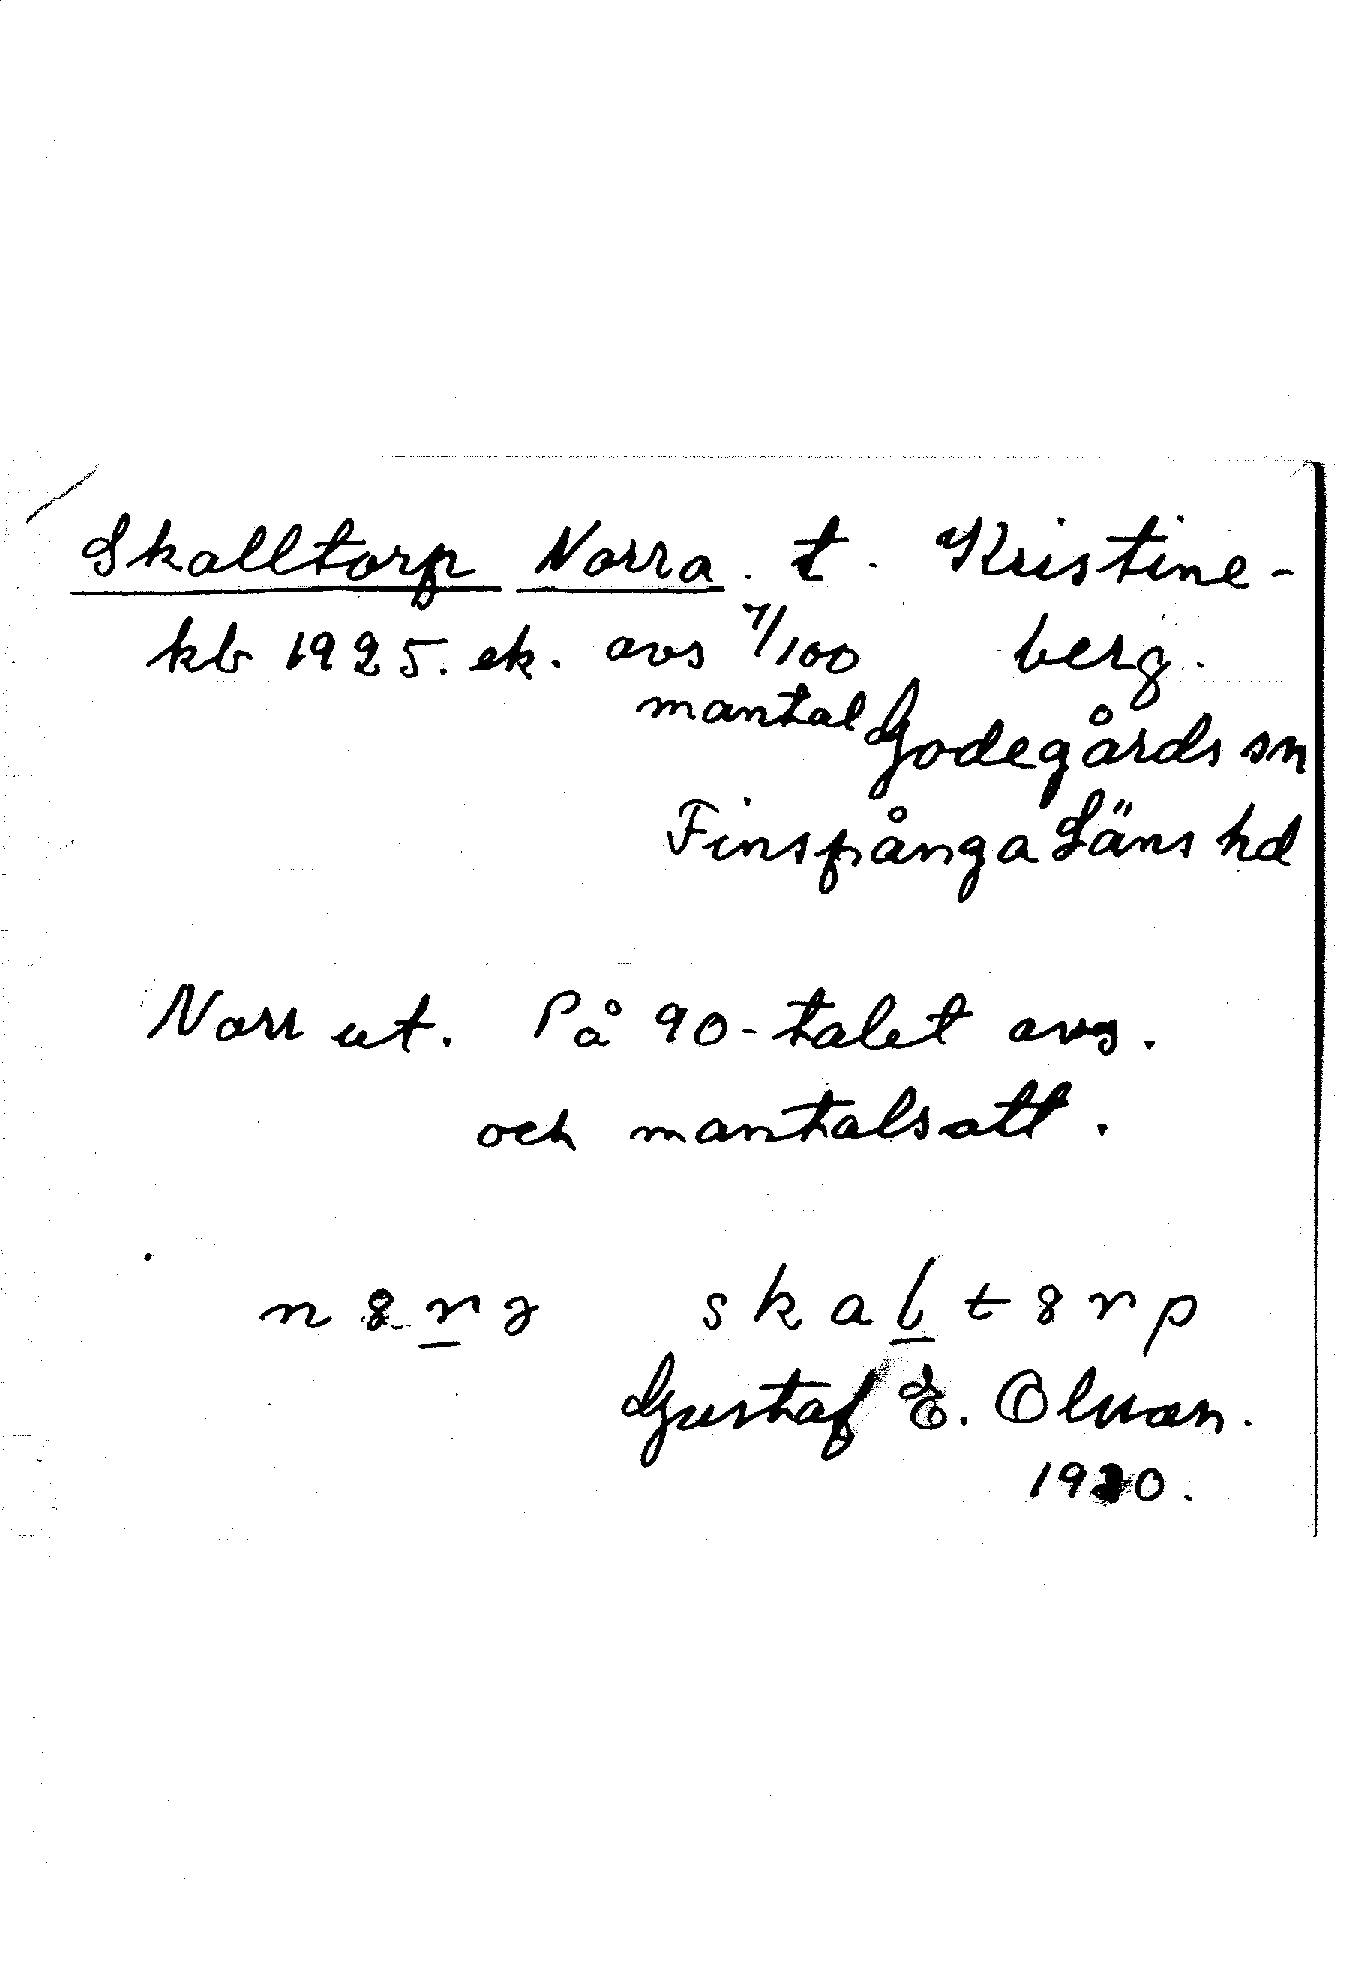 Skalltorp Norra. t. Kristine-
kb 1925. ek. avs 7/100 berg.
mantal
Godegårds sn
Finspånga Läns hd
Norr ut. På 90-talet avs.
och mantalsatt.
n8rg skalt8rp
Gustaf E. Olsson.